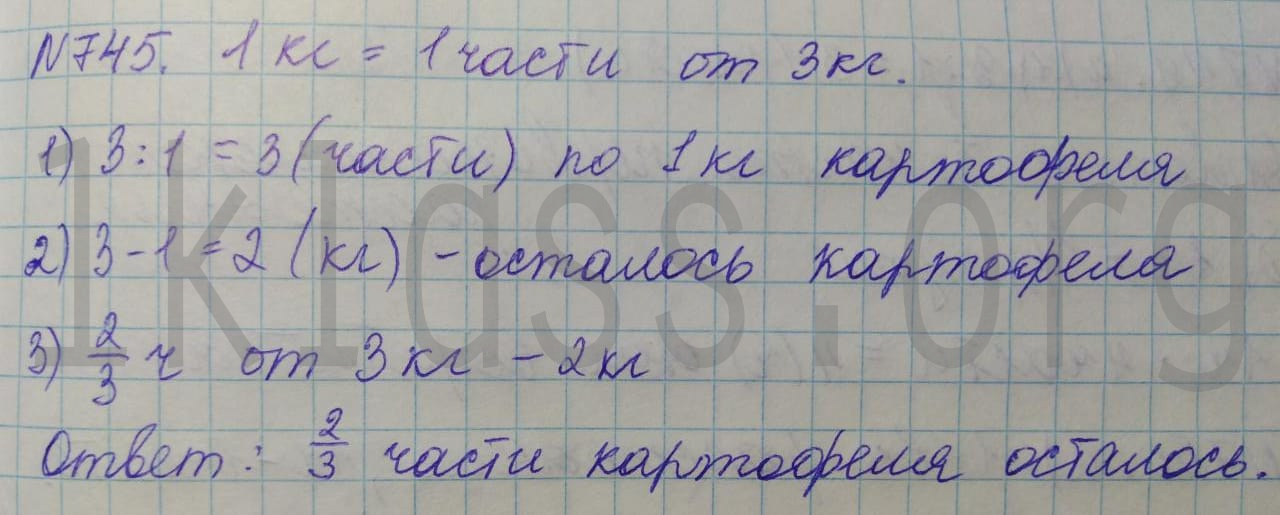 N745. 1 кг = 1 части от 3кг.
1) 3:1 = 3 (части) по 1кг картофеля
2) 3-1 = 2 (кг) - осталось картофеля
3) 2/3 ч от 3кг - 2кг
Ответ: 2/3 части картофеля осталось.
1klass.org